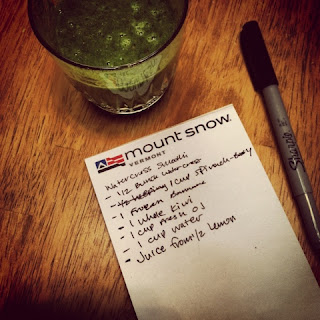 mount snow
VERMONT
Watercress Smoothi
- 1/2 Bunch Watercress
- 1/2 heaping 1 cup spinach - baby
- 1 Frozen Banana
- 1 whole Kiwi
- 1 cup fresh OJ
- 1 cup water
- Juice from 1/2 lemon
Sharpie